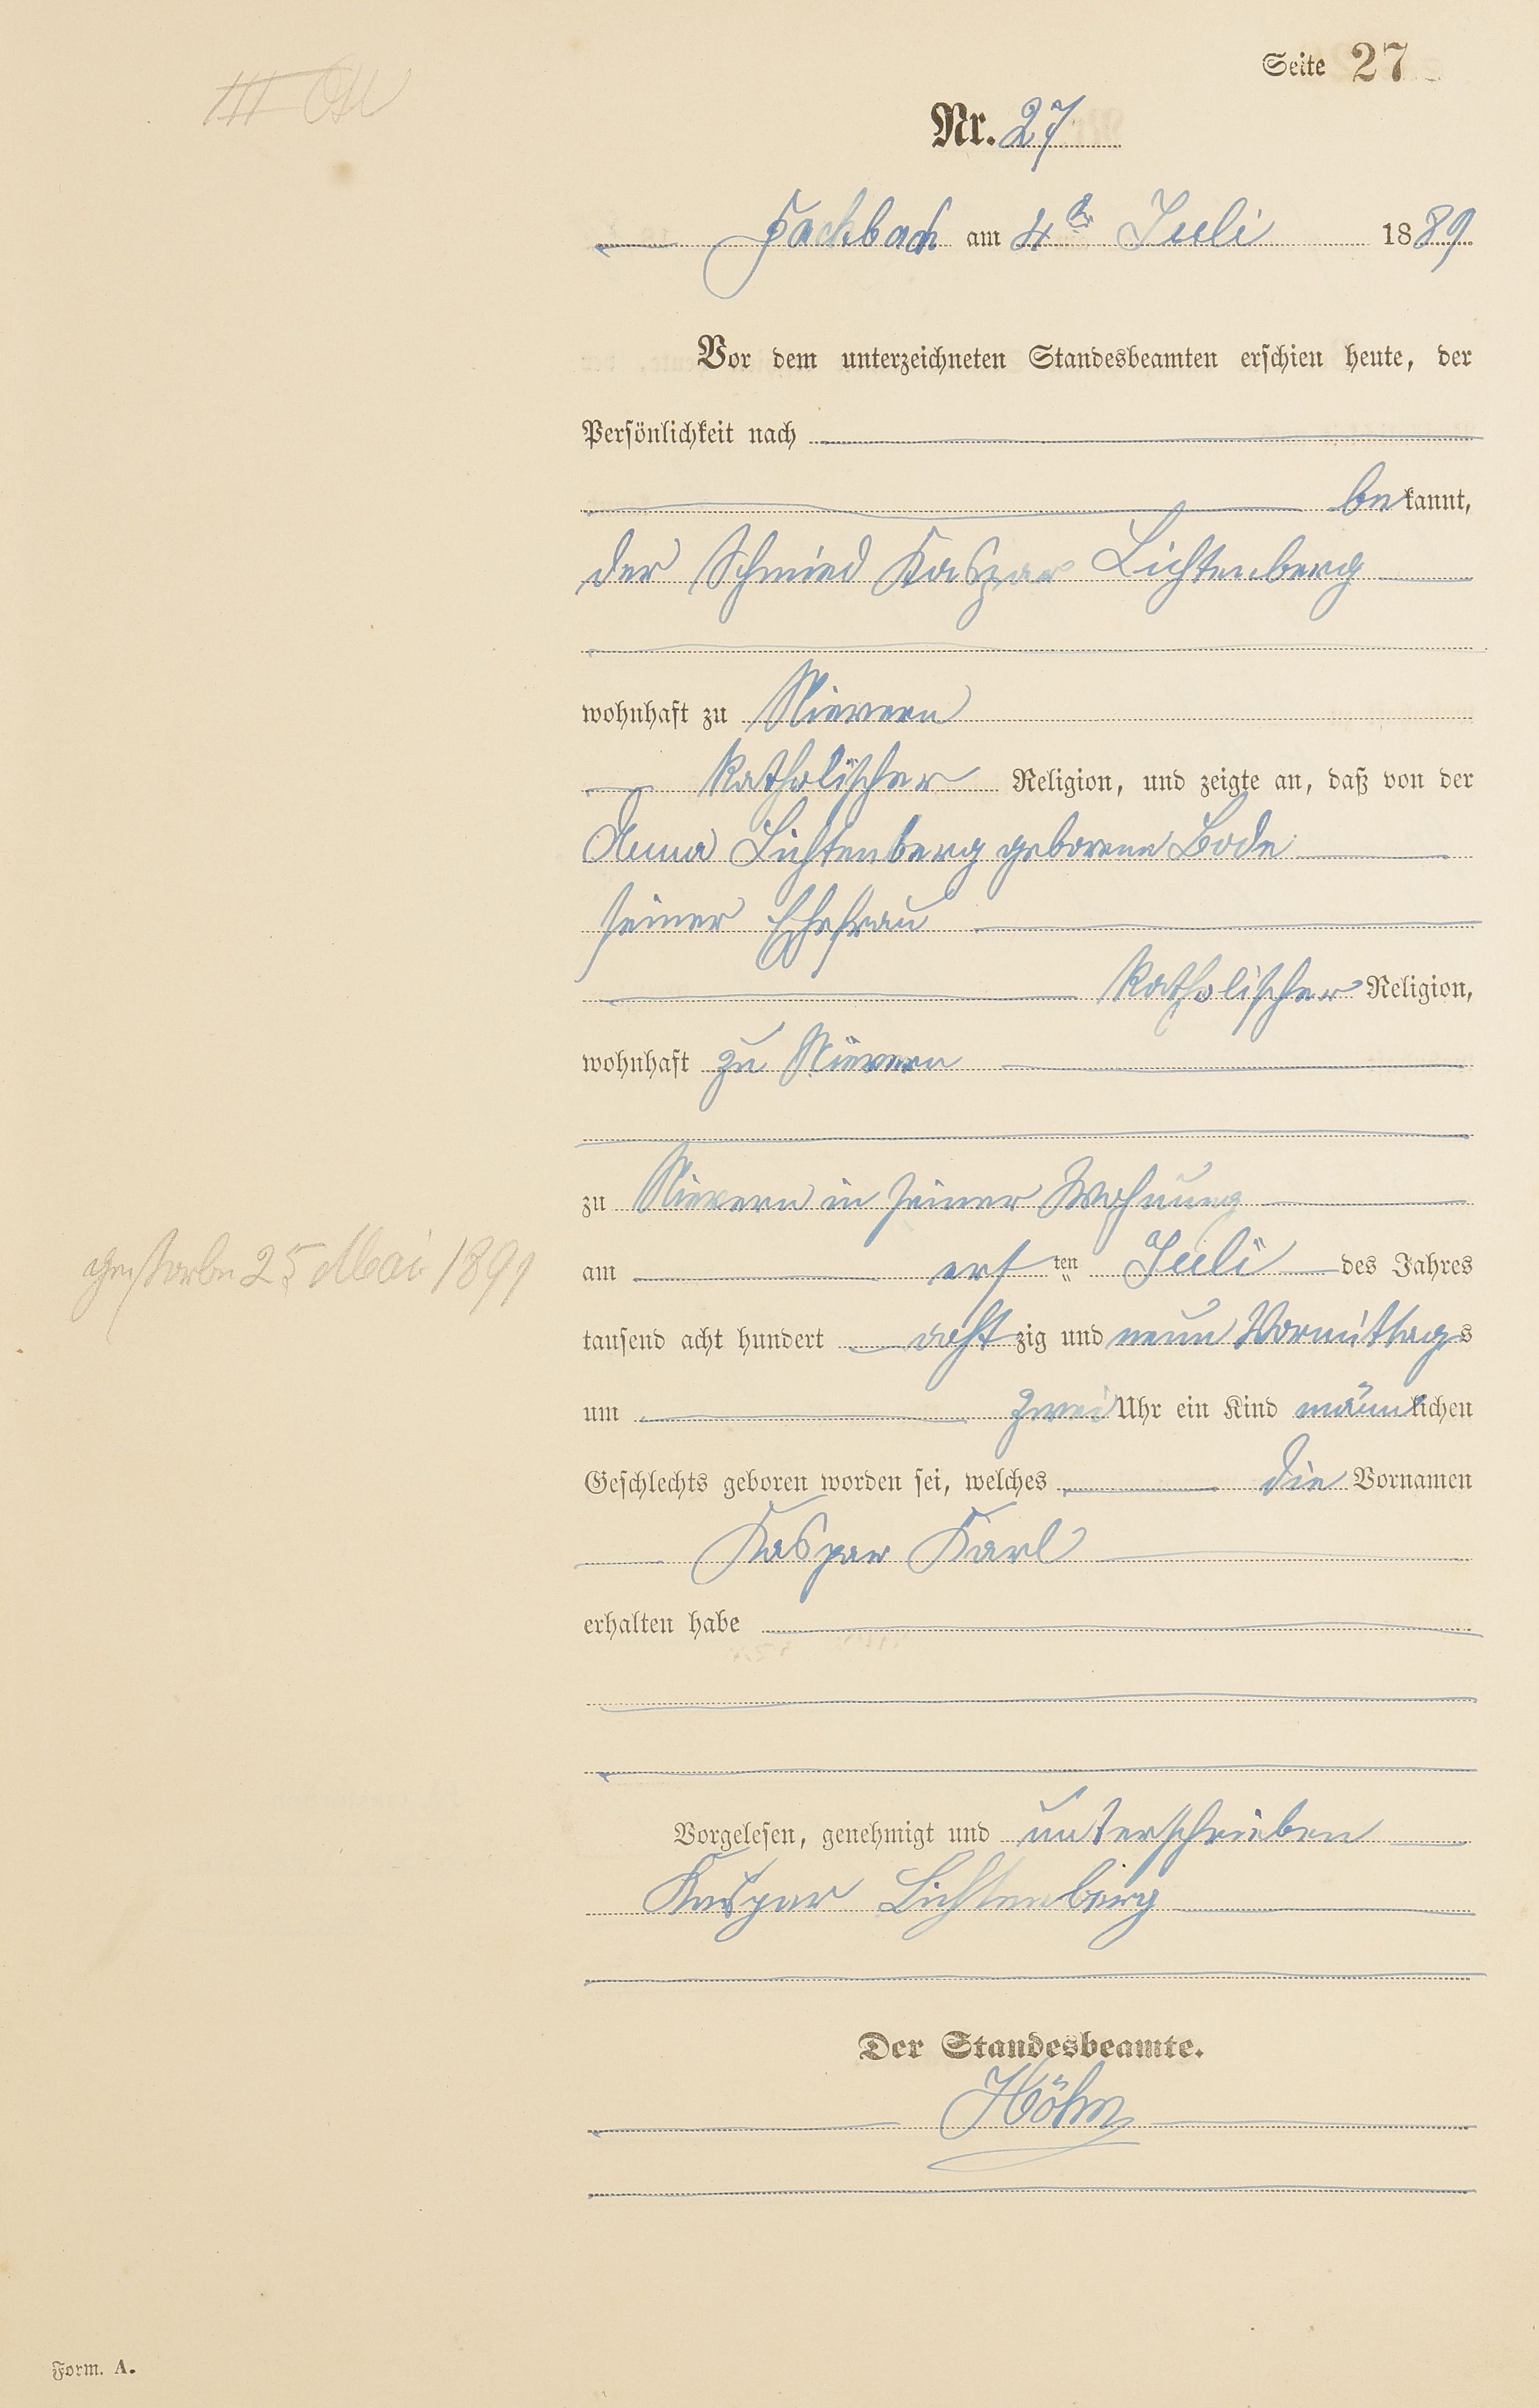 Seite 27
Nr. 27
Fachbach am 4ten Juli 1889
Vor dem unterzeichneten Standesbeamten erschien heute, der
Persönlichkeit nach
bekannt,
der Schmied Kaspar Lichtenberg
wohnhaft zu Nievern
katholischer Religion, und zeigte an, daß von der
Anna Lichtenberg geborene Bode
seiner Ehefrau
katholischer Religion,
wohnhaft zu Nievern
zu Nievern in seiner Wohnung
gestorben 25 Mai 1891
am ersten Juli des Jahres
tausend acht hundert achtzig und neun Vormittags
um zwei Uhr ein Kind männlichen
Geschlechts geboren worden sei, welches die Vornamen
Kaspar Karl
erhalten habe
Vorgelesen, genehmigt und unterschrieben
Kaspar Lichtenberg
Der Standesbeamte.
Höhn
Form. A.